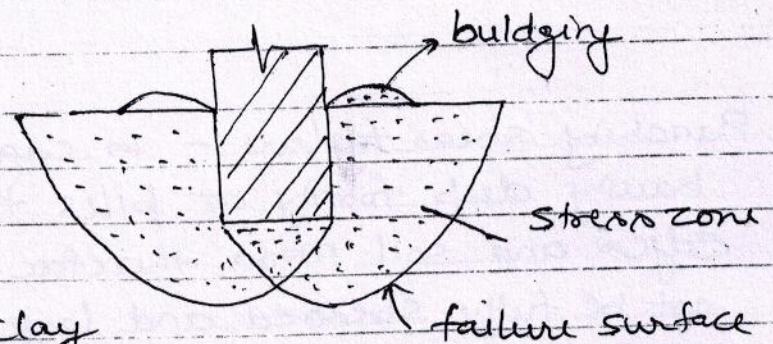 buldging
stress zone
lay
failure surface